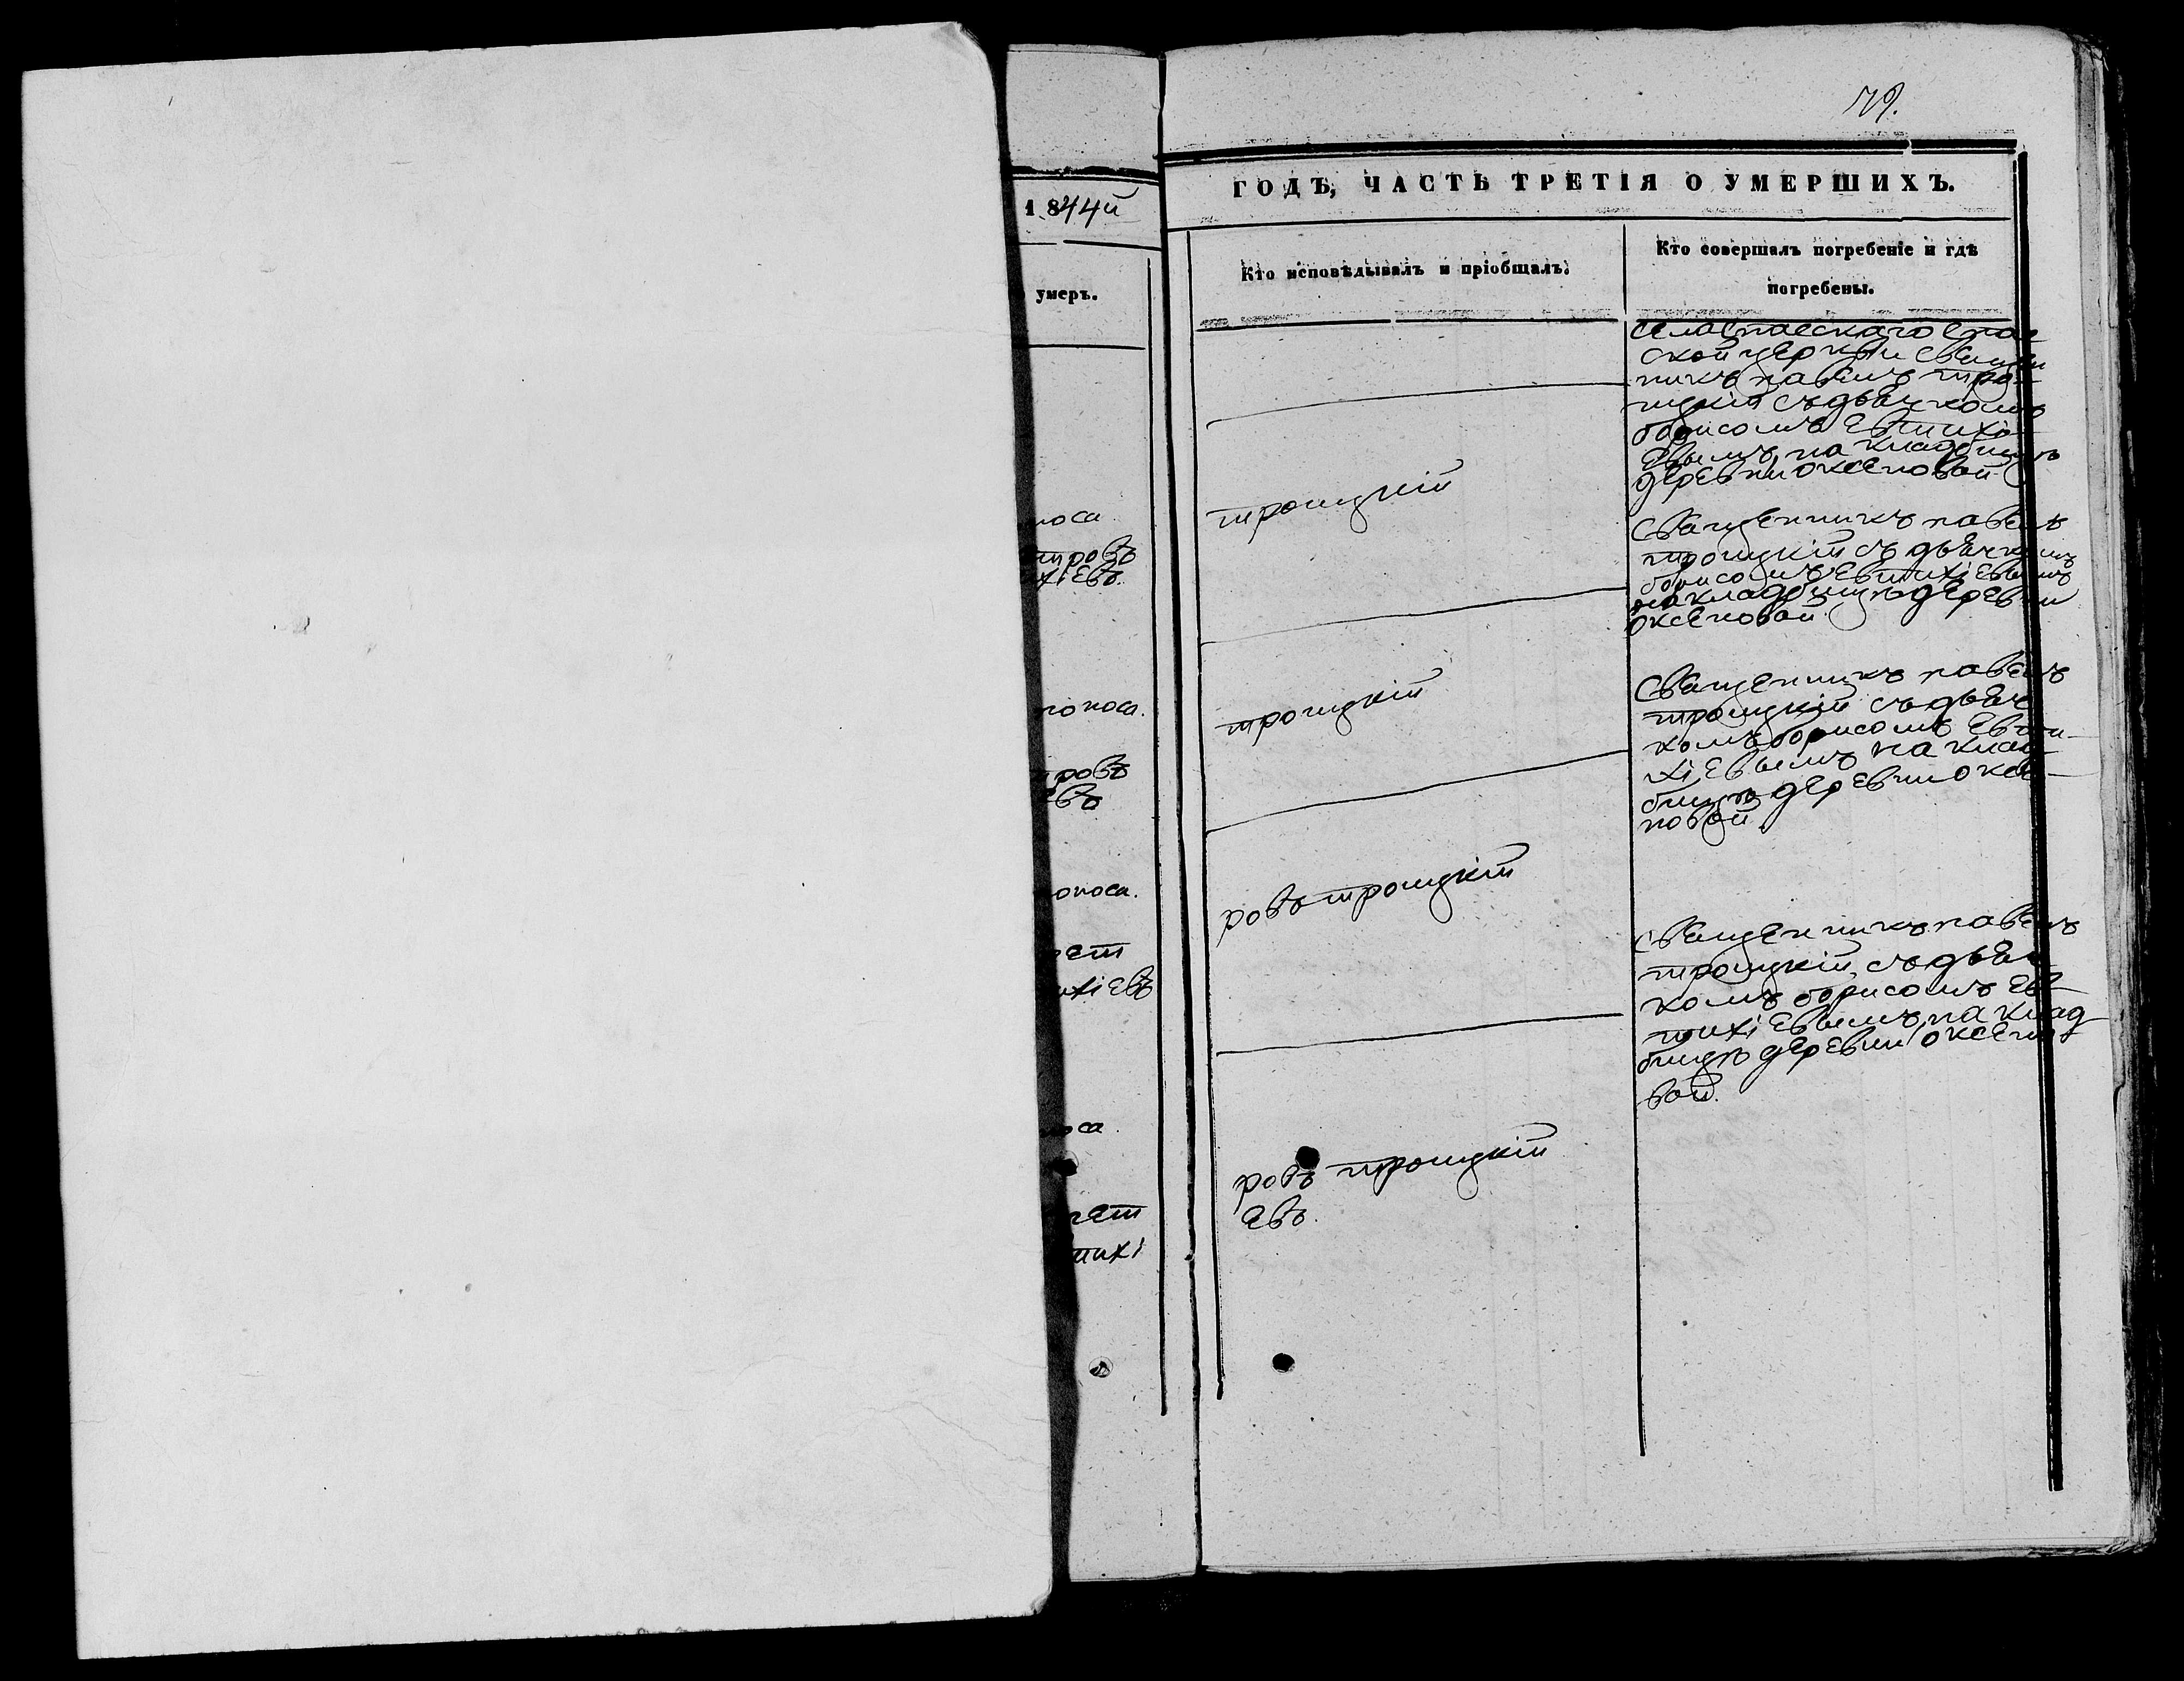 79.
1844й
умеръ.
поса
тровъ
хіевъ.
поноса.
ровъ
евъ
оноса.
чет
ихіевъ
са
чет
тихі
ГОДЪ, ЧАСТЬ ТРЕТІЯ О УМЕРШИХЪ.
Кто исповѣдывалъ и пріобщалъ.
троицкій
троицкій
ровъ троицкій
ровъ троицкій
евъ.
Кто совершалъ погребеніе и гдѣ
погребены.
села спаскаго спас
ской церкви священ
никъ павелъ трои-
цкій съ дьячкомъ
борисомъ евтихіе-
евымъ на кладбищѣ
деревни оксеновой
священникъ павелъ
троицкій съ дьячкомъ
борисомъ евтихіевымъ
на кладбищѣ деревни
оксеновой
священникъ павелъ
троицкій съ дьяч
комъ борисомъ евти-
хіевымъ на клад-
бищѣ деревни оксе-
новой
священникъ павелъ
троицкій, съ дьяч
комъ борисомъ ев-
тихіевымъ, на клад
бищѣ деревни оксено
вой.